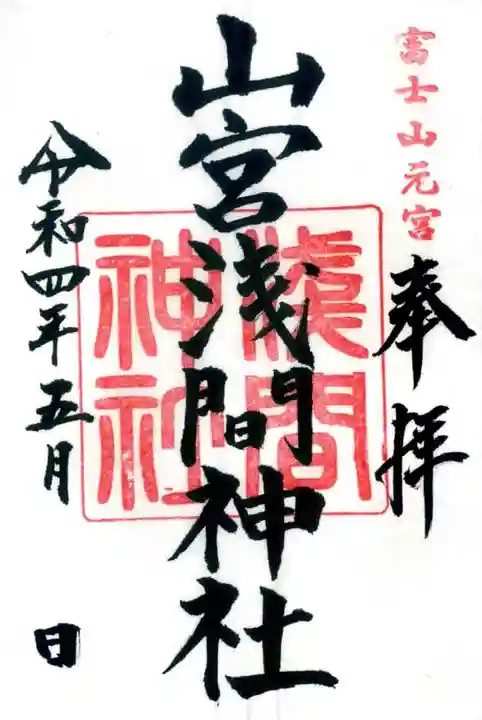 富士山元宮
奉拝
山宮浅間神社
淺間
神社
令和四年五月
日